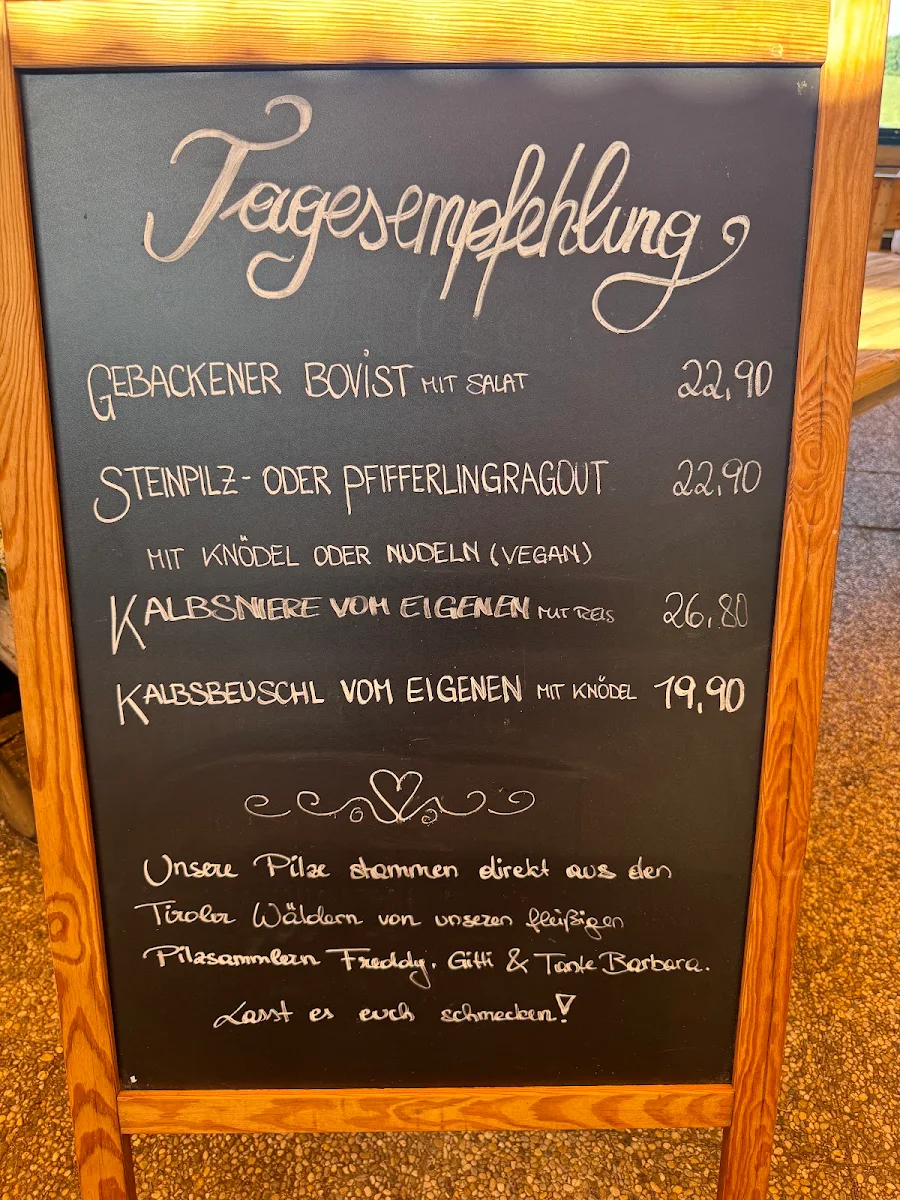 Tagesempfehlung
GEBACKENER BOViST MIT SALAT 22,90
STEINPILZ- ODER PFIFFERLINGRAGOUT 22,90
MIT KNÖDEL ODER NUDELN (VEGAN)
KALBSNIERE VOM EIGENEN MIT REIS 26,80
KALBSBEUSCHL VOM EIGENEN MIT KNÖDEL 19,90
Unsere Pilze stammen direkt aus den
Tiroler Wäldern von unseren fleißigen
Pilzsammlern Freddy, Gitti & Tante Barbara.
Lasst es euch schmecken!